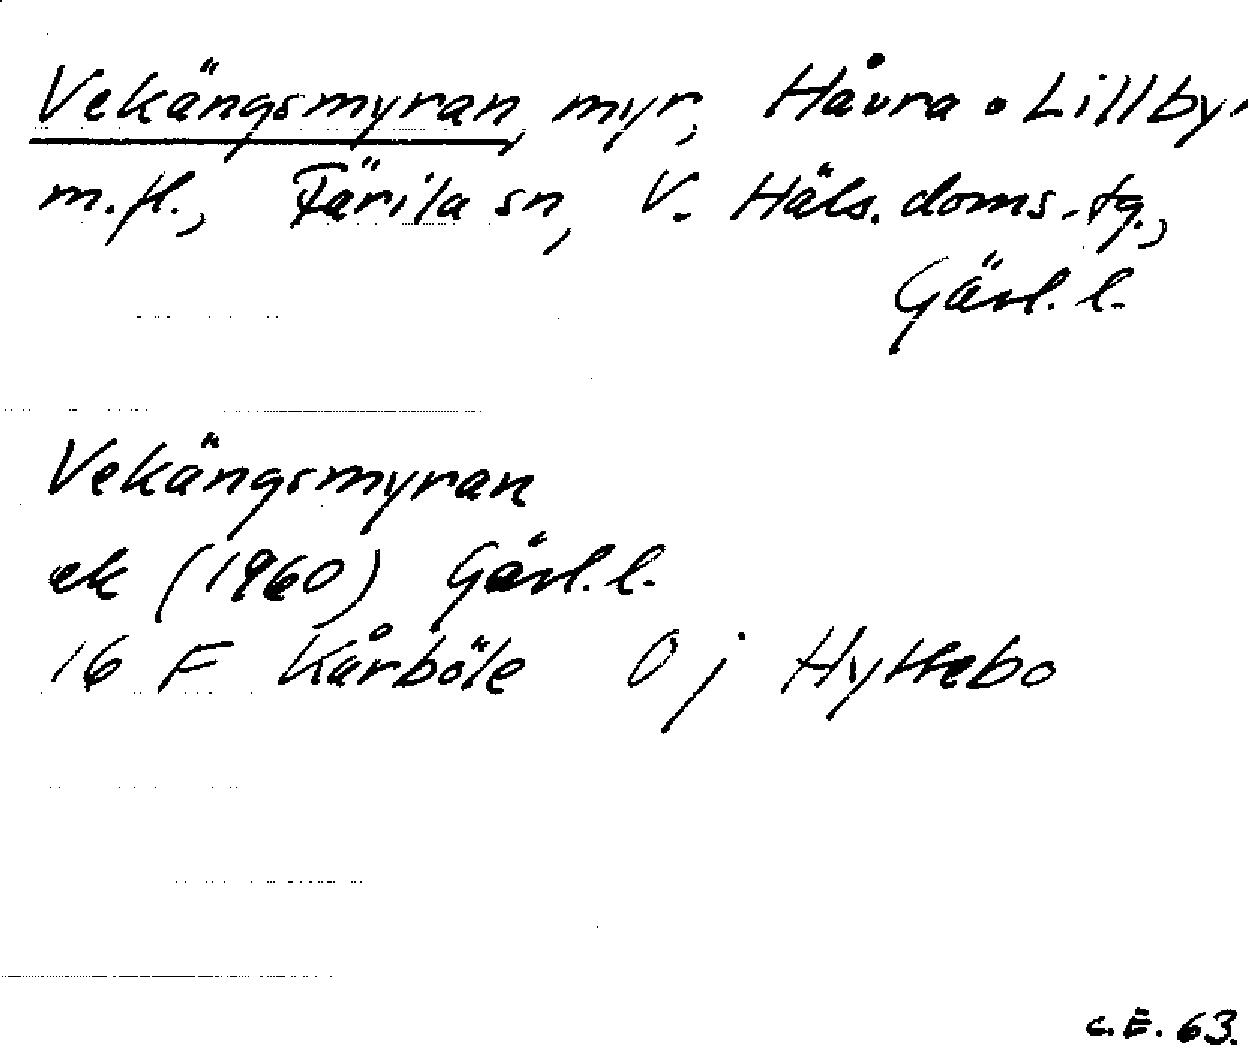 Vekängsmyran, myr, Håvra o Lillbyn
m.fl., Färila sn, V. Häls. doms.-tg.,
Gävl. l.
Vekängsmyran
ek (1960) Gävl. l.
16 F Kårböle 0 j Hyttebo
C.E. 63.